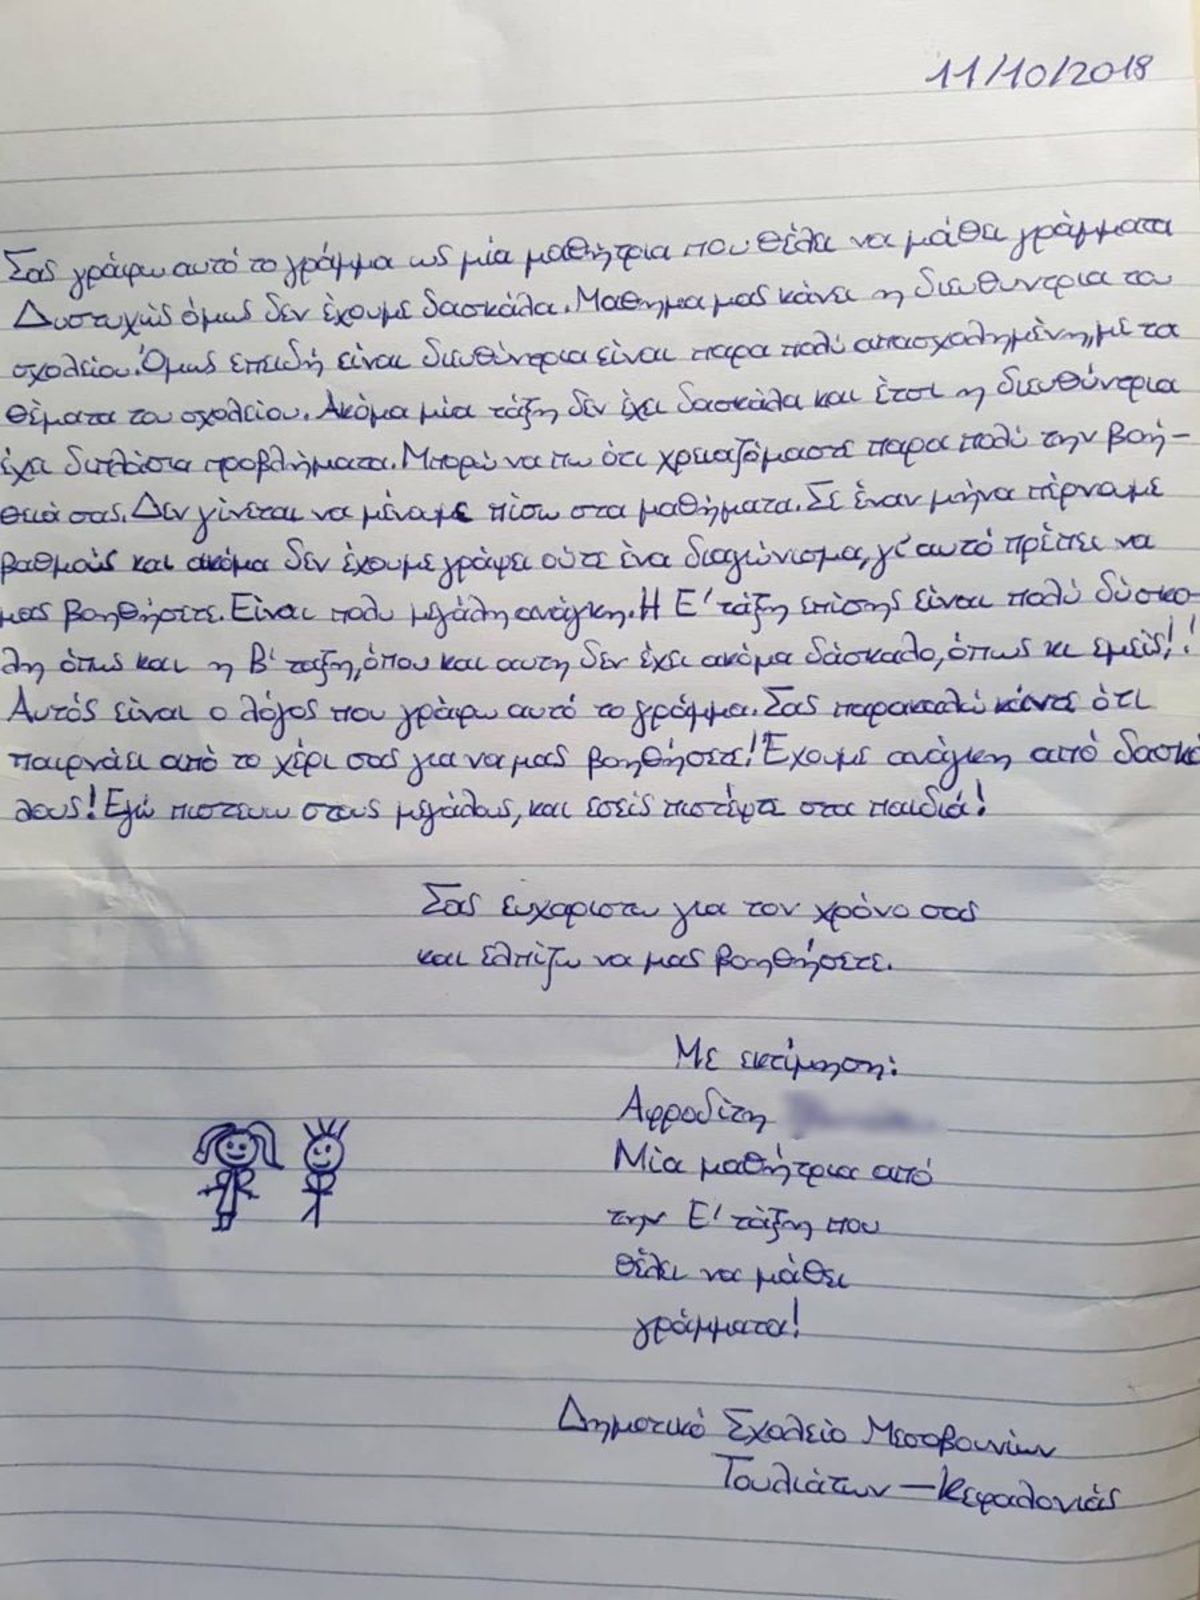 11/10/2018
Σας γράφω αυτό το γράμμα ως μία μαθήτρια που θέλει να μάθει γράμματα
Δυστυχώς όμως δεν έχουμε δασκάλα. Μαθημα μας κάνει η διευθυντρια του
σχολείου. Όμως επειδή είναι διευθύντρια είναι παρα πολύ απασχολημένη, με τα
θέματα του σχολείου. Ακόμα μία τάξη δεν έχει δασκάλα και έτσι η διευθύντρια
έχει διπλάσια προβλήματα. Μπορώ να πω ότι χρειαζόμαστε παρα πολύ την βοή-
θειά σας. Δεν γίνεται να μένουμε πίσω στα μαθήματα. Σε έναν μήνα πέρνουμε
βαθμούς και ακόμα δεν έχουμε γράψει ούτε ένα διαγώνισμα, γι' αυτό πρέπει να
μας βοηθήσετε. Είναι πολυ μεγάλη ανάγκη. Η Ε' τάξη επίσης είναι πολύ δύσκο-
λη όπως και η Β' ταξη, όπου και αυτη δεν έχει ακόμα δάσκαλο, όπως κι εμείς!!
Αυτός είναι ο λόγος που γράφω αυτό το γράμμα. Σας παρακαλώ κάντε ότι
παιρνάει από το χέρι σας για να μας βοηθήσετε! Έχουμε ανάγκη από δασκά
λους! Εγώ πιστευω στους μεγάλους, και εσείς πιστέψτε στα παιδιά!
Σας ευχαριστω για τον χρόνο σας
και ελπίζω να μας βοηθήσετε.
Με εκτίμηση:
Αφροδίτη
Μία μαθήτρια από
την Ε' τάξη που
θέλει να μάθει
γράμματα!
Δημοτικό Σχολείο Μεσοβουνίων
Τουλιάτων – Κεφαλονιάς